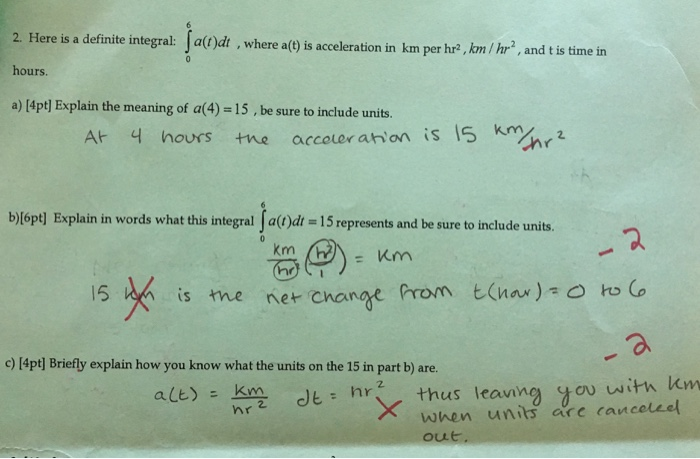 2. Here is a definite integral: ∫₀⁶ a(t)dt , where a(t) is acceleration in km per hr², km / hr², and t is time in
hours.
a) [4pt] Explain the meaning of a(4) = 15 , be sure to include units.
At 4 hours the acceleration is 15 km/hr²
b)[6pt] Explain in words what this integral ∫₀⁶ a(t)dt = 15 represents and be sure to include units.
-2
km/hr² (hr²/1) = km
15 km is the net change from t(hour) = 0 to 6
-2
c) [4pt] Briefly explain how you know what the units on the 15 in part b) are.
a(t) = km/hr² dt = hr² thus leaving you with km
X when units are canceled
out.